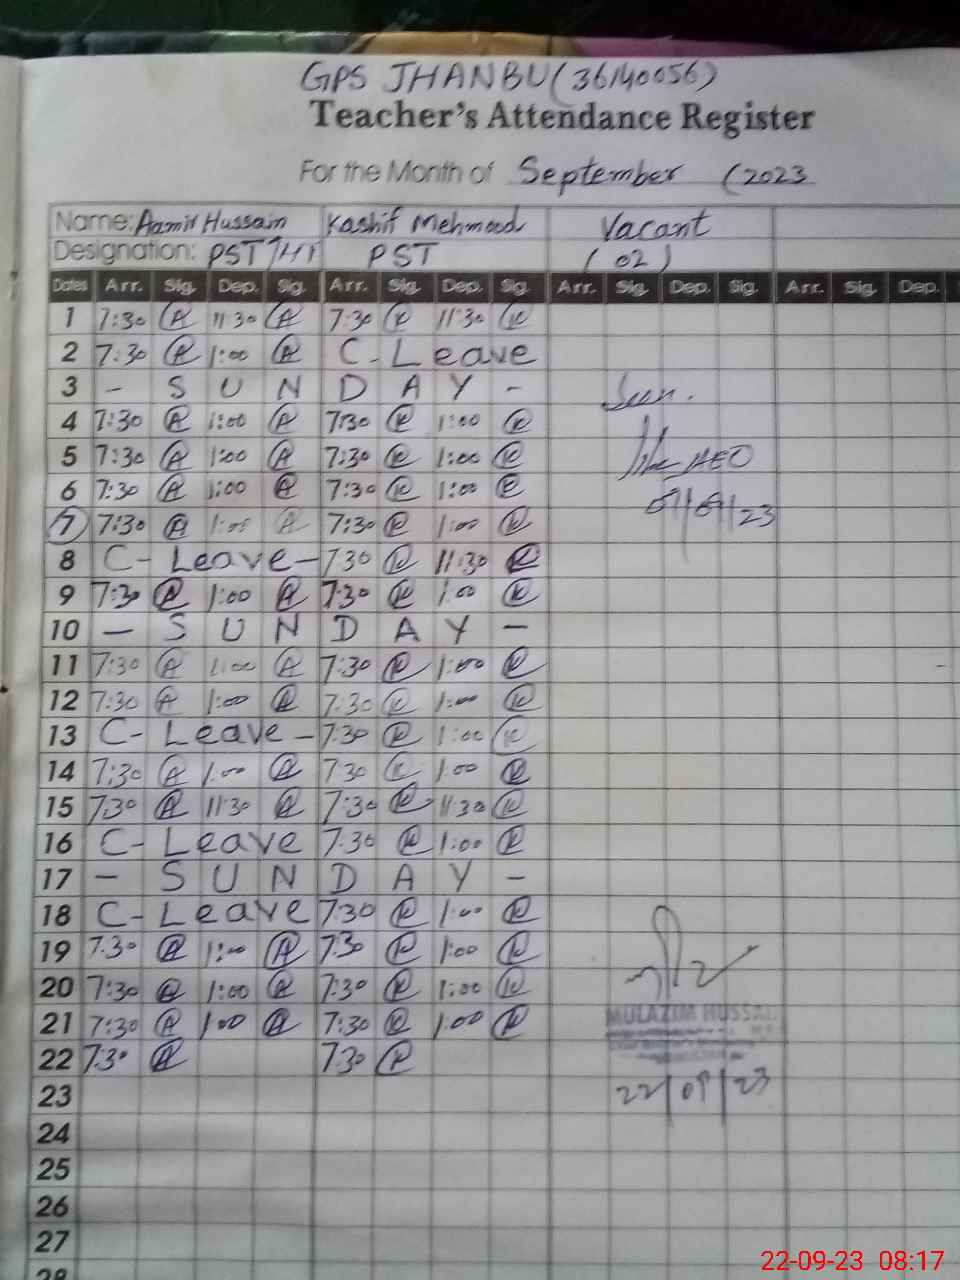 GPS JHANBU (36140056)
Teacher's Attendance Register
For the Month of September (2023
Name: Aamir Hussain Kashif Mehmood Vacant
Designation: PST/HT PST (02)
Dates Arr. Sig. Dep. Sig. Arr. Sig. Dep. Sig. Arr. Sig. Dep. Sig. Arr. Sig. Dep.
1 7:30 A 11:30 A 7:30 K 11:30 K
2 7:30 A 1:00 A C-Leave
3 - S U N D A Y -
Seen.
4 7:30 A 1:00 A 7:30 K 1:00 K
5 7:30 A 1:00 A 7:30 K 1:00 K
AEO
6 7:30 A 1:00 A 7:30 K 1:00 K
7 7:30 A 1:00 A 7:30 K 1:00 K
07/09/23
8 C-Leave- 7:30 K 11:30 K
9 7:30 A 1:00 A 7:30 K 1:00 K
10 - S U N D A Y -
11 7:30 A 1:00 A 7:30 K 1:00 K
12 7:30 A 1:00 A 7:30 K 1:00 K
13 C-Leave- 7:30 K 1:00 K
14 7:30 A 1:00 A 7:30 K 1:00 K
15 7:30 A 11:30 A 7:30 K 11:30 K
16 C-Leave 7:30 K 1:00 K
17 - S U N D A Y -
18 C-Leave 7:30 K 1:00 K
19 7:30 A 1:00 A 7:30 K 1:00 K
20 7:30 A 1:00 A 7:30 K 1:00 K
21 7:30 A 1:00 A 7:30 K 1:00 K
MULAZIM HUSSAI
22 7:30 A 7:30 K
22/09/23
23
24
25
26
27
28
22-09-23 08:17